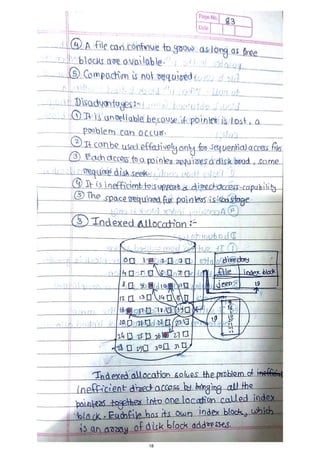 Page No. 83
Date
④ A file can continue to grow as long as free
blocks are available.
⑤ Compaction is not required.
Disadvantages:-
① It is unreliable because if pointer is lost, a
problem can occur.
② It can be used effectively only for sequential access files
③ Each access to a pointer requires a disk read, some
require disk seek
④ It is inefficient to support a direct access capability
⑤ The space required for pointers is
③ Indexed Allocation:-
directory
file index block
jeep 19
Indexed allocation solves the problem of
inefficient direct access by bringing all the
pointers together into one location called index
block. Each file has its own index block, which
is an array of disk block addresses.
18